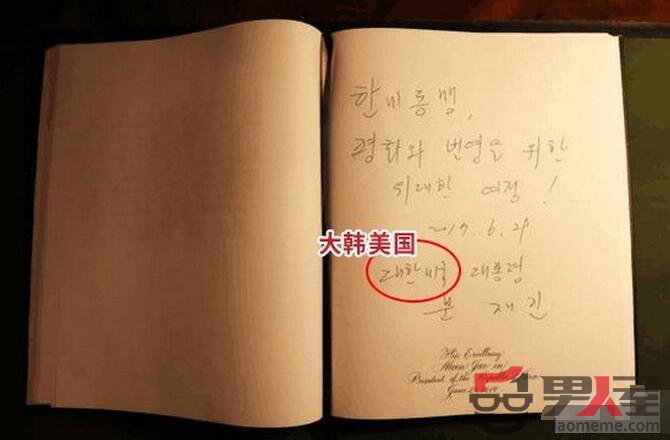 한미동맹,
평화와 번영을 위한
위대한 여정!
2017. 6. 28
大韩美国
대한미국 대통령
문 재 인
His Excellency
Moon Jae-in
President of the Republic
June 28, 2017
男人
aomeme.com